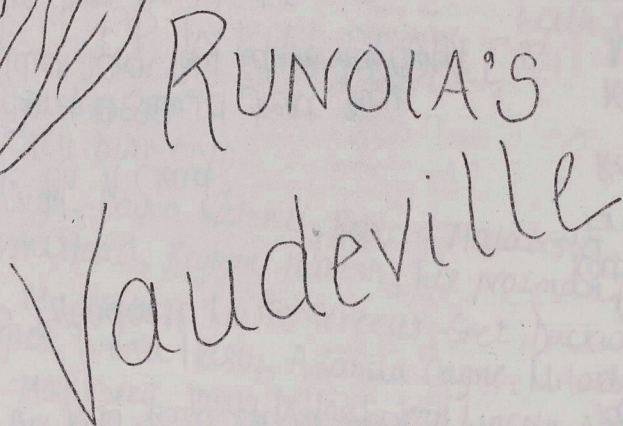 RUNOIA'S
Vaudeville